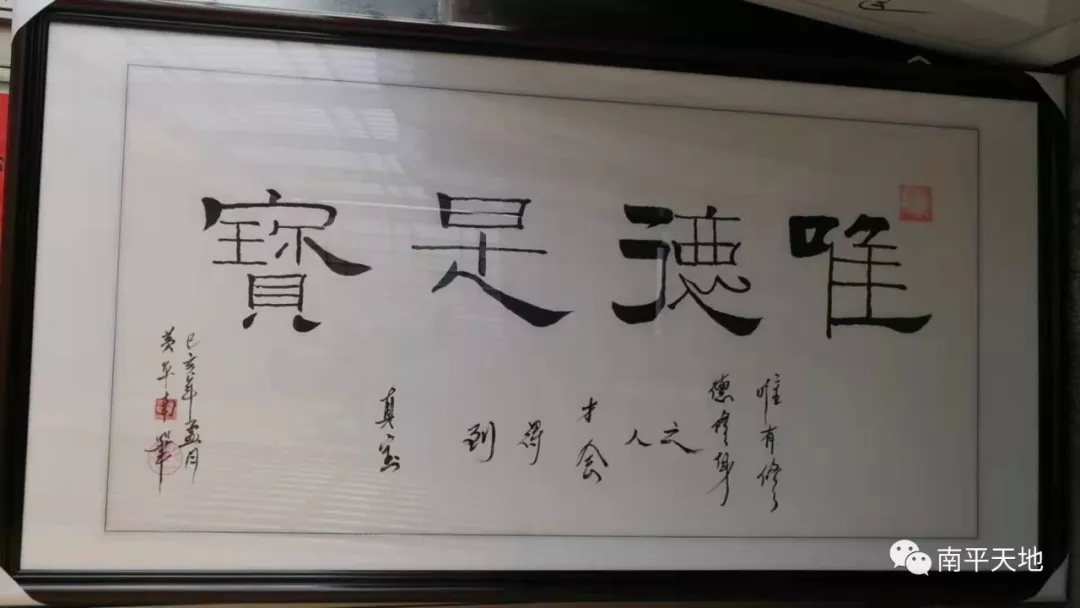 唯德是寶
唯有修
德修身
之
人
才会
得
到
真宝
己亥年孟月
黄平南笔
南平天地